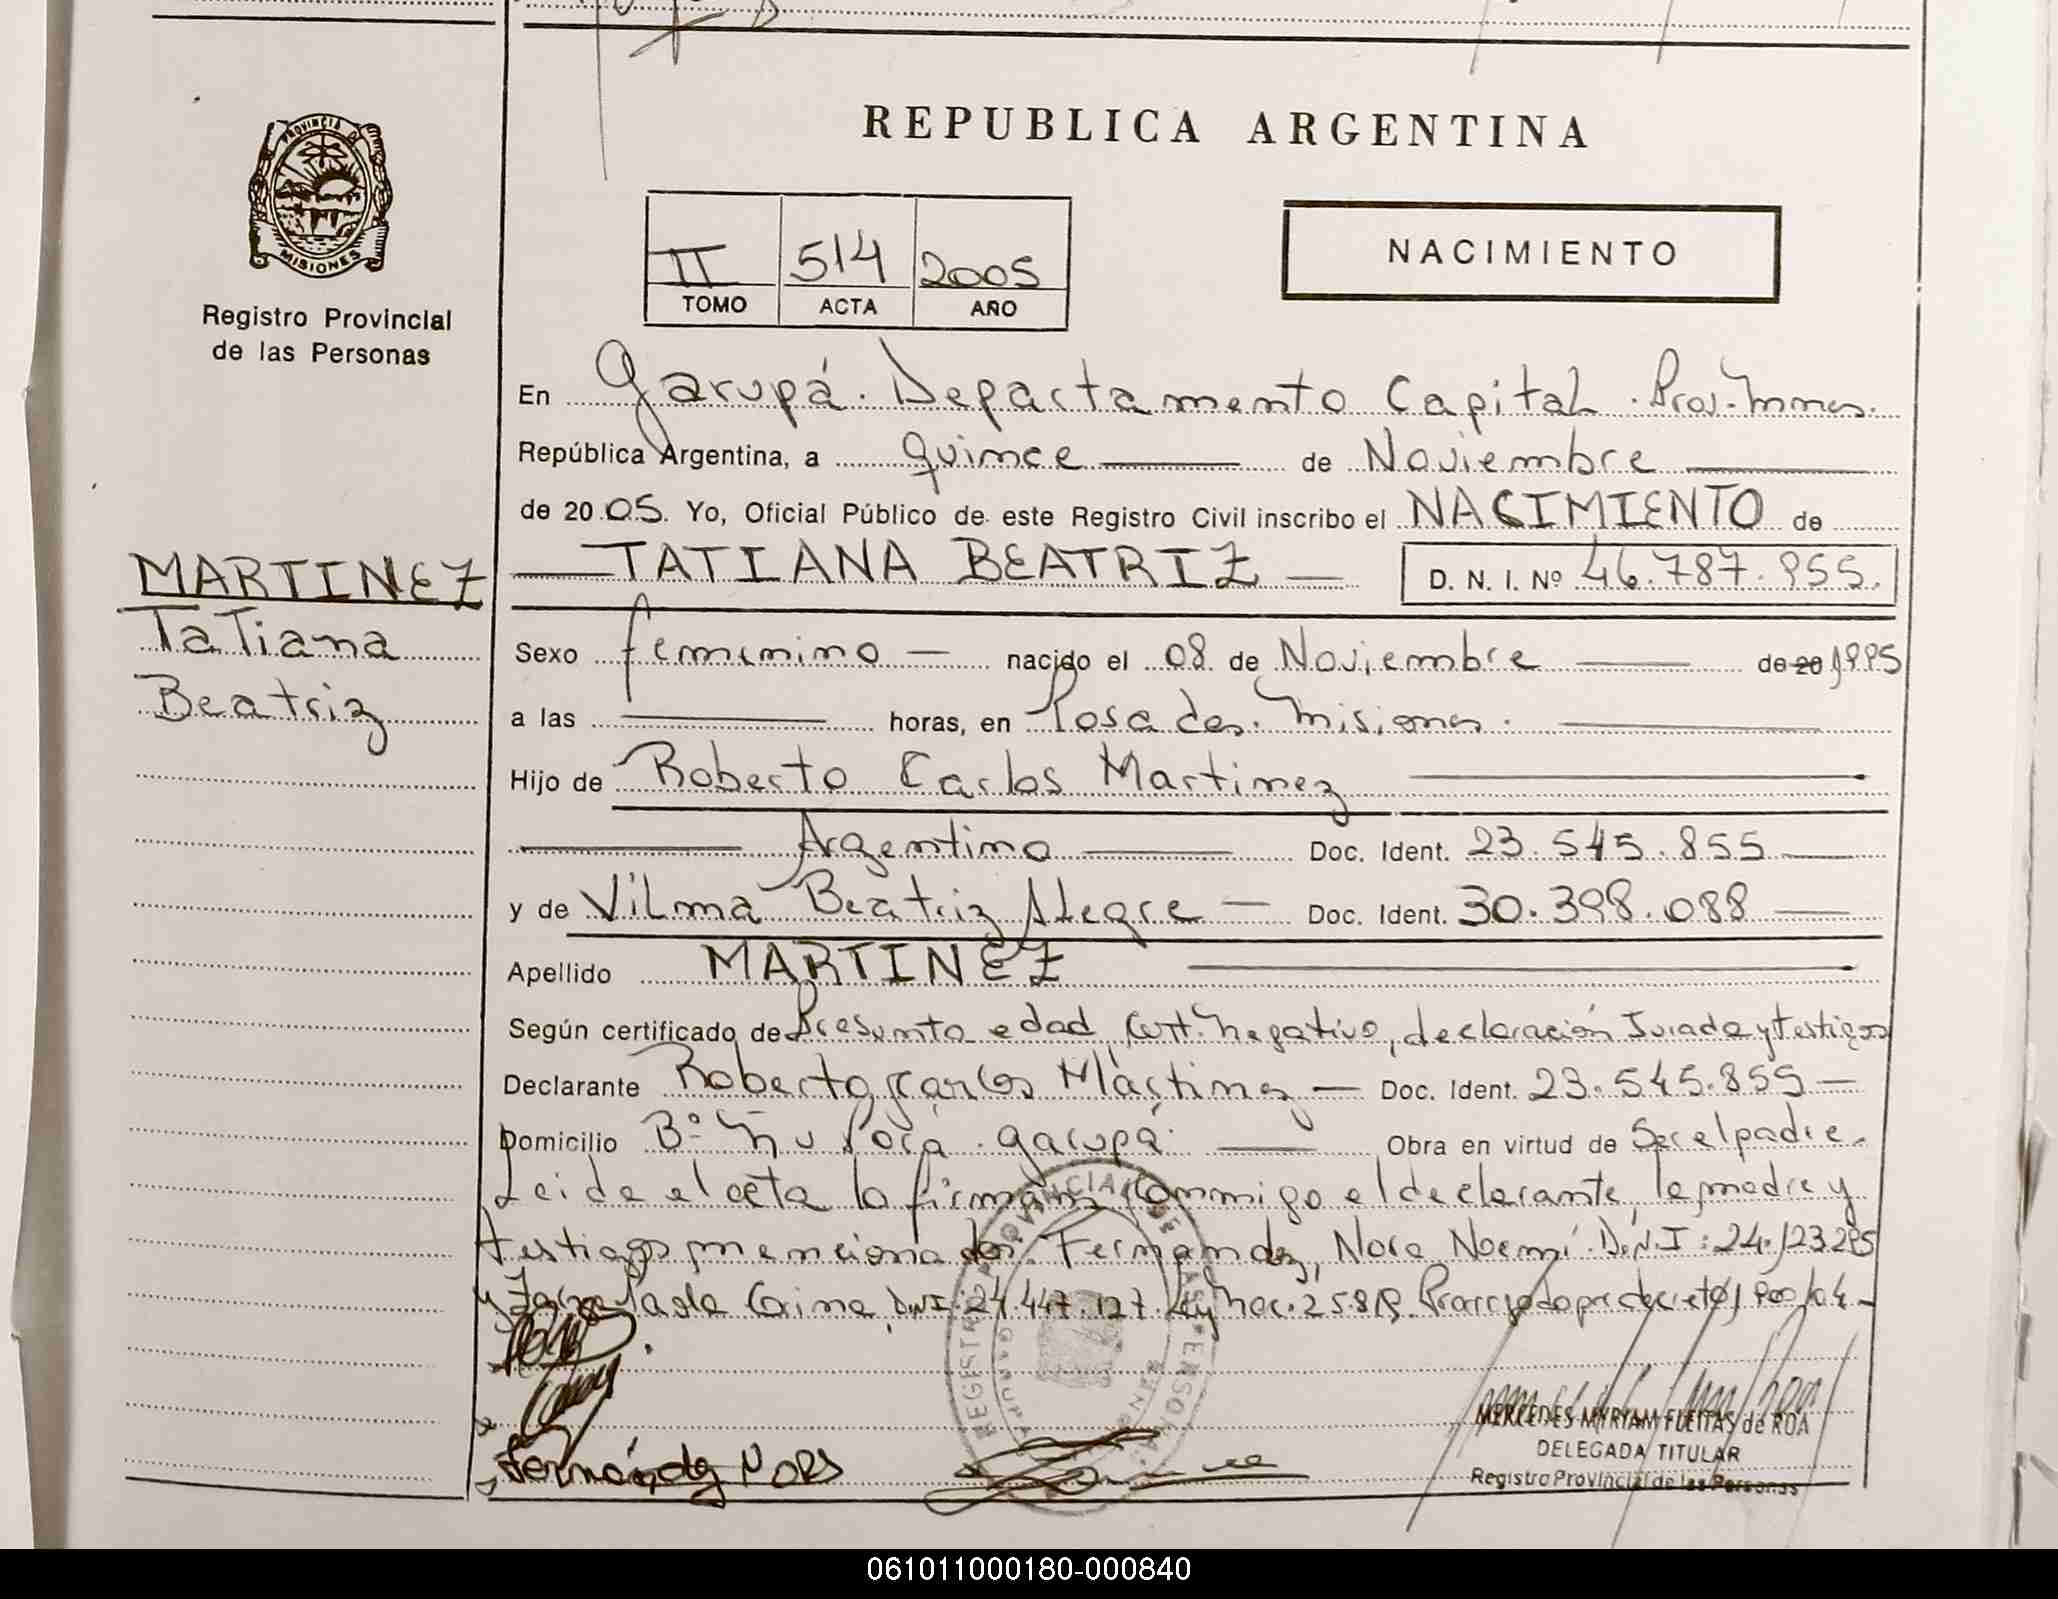 REPUBLICA ARGENTINA
PROVINCIA DE
MISIONES
Registro Provincial
de las Personas
II 514 2005
TOMO ACTA AÑO
NACIMIENTO
En Garupá. Departamento Capital. Prov. Mnes.
República Argentina, a quince de Noviembre
de 20 05. Yo, Oficial Público de este Registro Civil inscribo el NACIMIENTO de
MARTINEZ
Tatiana
Beatriz
TATIANA BEATRIZ D. N. I. Nº 46.787.955.
Sexo femenino nacido el 08 de Noviembre de 20 1995
a las horas, en Posadas. Misiones.
Hijo de Roberto Carlos Martinez
Argentino Doc. Ident. 23.545.855
y de Vilma Beatriz Alegre Doc. Ident. 30.398.088
Apellido MARTINEZ
Según certificado de Presunta edad, Cert. Negativo, declaración Jurada y testigos
Declarante Roberto Carlos Martinez Doc. Ident. 23.545.855
Domicilio Bº Ñu Porá. Garupá. Obra en virtud de Ser el padre.
Leida el acta la firman conmigo el declarante, la madre y
testigos mencionados. Fernandez, Nora Noemí. D.N.I: 24.123.295
y Corina, DNI: 24.447.127. Ley Nac. 25.819. Prorrogado por decreto
Fernández Nora
REGISTRO PROVINCIAL DE LAS PERSONAS
GARUPA
MERCEDES MYRIAM FLEITAS de ROA
DELEGADA TITULAR
Registro Provincial de las Personas
061011000180-000840